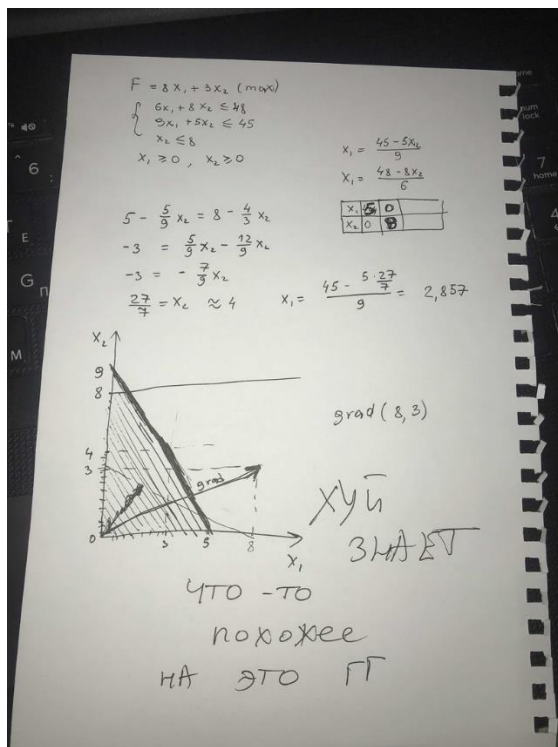 F = 8x₁ + 3x₂ (max)
6x₁ + 8x₂ ≤ 48
9x₁ + 5x₂ ≤ 45
x₂ ≤ 8
x₁ ≥ 0, x₂ ≥ 0
x₁ = (45 - 5x₂)/9
x₁ = (48 - 8x₂)/6
x₁ 5 0
x₂ 0 9
5 - 5/9 x₂ = 8 - 4/3 x₂
-3 = 5/9 x₂ - 12/9 x₂
-3 = - 7/9 x₂
27/7 = x₂ ≈ 4
x₁ = (45 - 5·27/7)/9 = 2,857
x₂
9
8
4
3
0
3
5
8
x₁
grad
grad (8, 3)
ХУЙ
ЗНАЕТ
ЧТО-ТО
похожее
НА ЭТО ГГ
6
7
home
num
lock
E
G
П
M